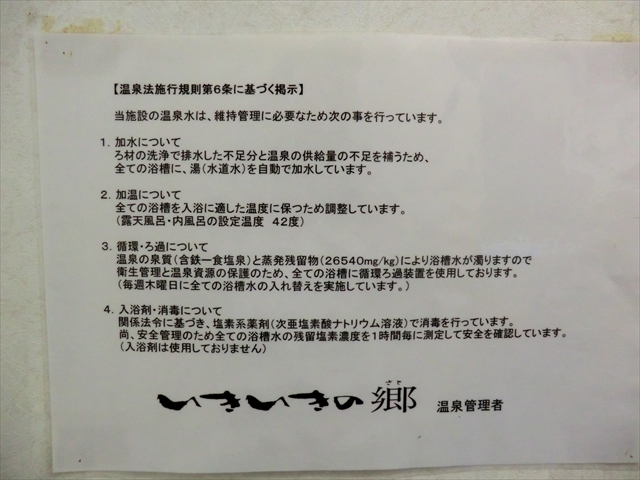 【温泉法施行規則第6条に基づく掲示】
当施設の温泉水は、維持管理に必要なため次の事を行っています。
1. 加水について
ろ材の洗浄で排水した不足分と温泉の供給量の不足を補うため、
全ての浴槽に、湯(水道水)を自動で加水しています。
2. 加温について
全ての浴槽を入浴に適した温度に保つため調整しています。
(露天風呂・内風呂の設定温度 42度)
3. 循環・ろ過について
温泉の泉質(含鉄ー食塩泉)と蒸発残留物(26540mg/kg)により浴槽水が濁りますので
衛生管理と温泉資源の保護のため、全ての浴槽に循環ろ過装置を使用しております。
(毎週木曜日に全ての浴槽水の入れ替えを実施しています。)
4. 入浴剤・消毒について
関係法令に基づき、塩素系薬剤(次亜塩素酸ナトリウム溶液)で消毒を行っています。
尚、安全管理のため全ての浴槽水の残留塩素濃度を1時間毎に測定して安全を確認しています。
(入浴剤は使用しておりません)
さと
いきいきの郷 温泉管理者